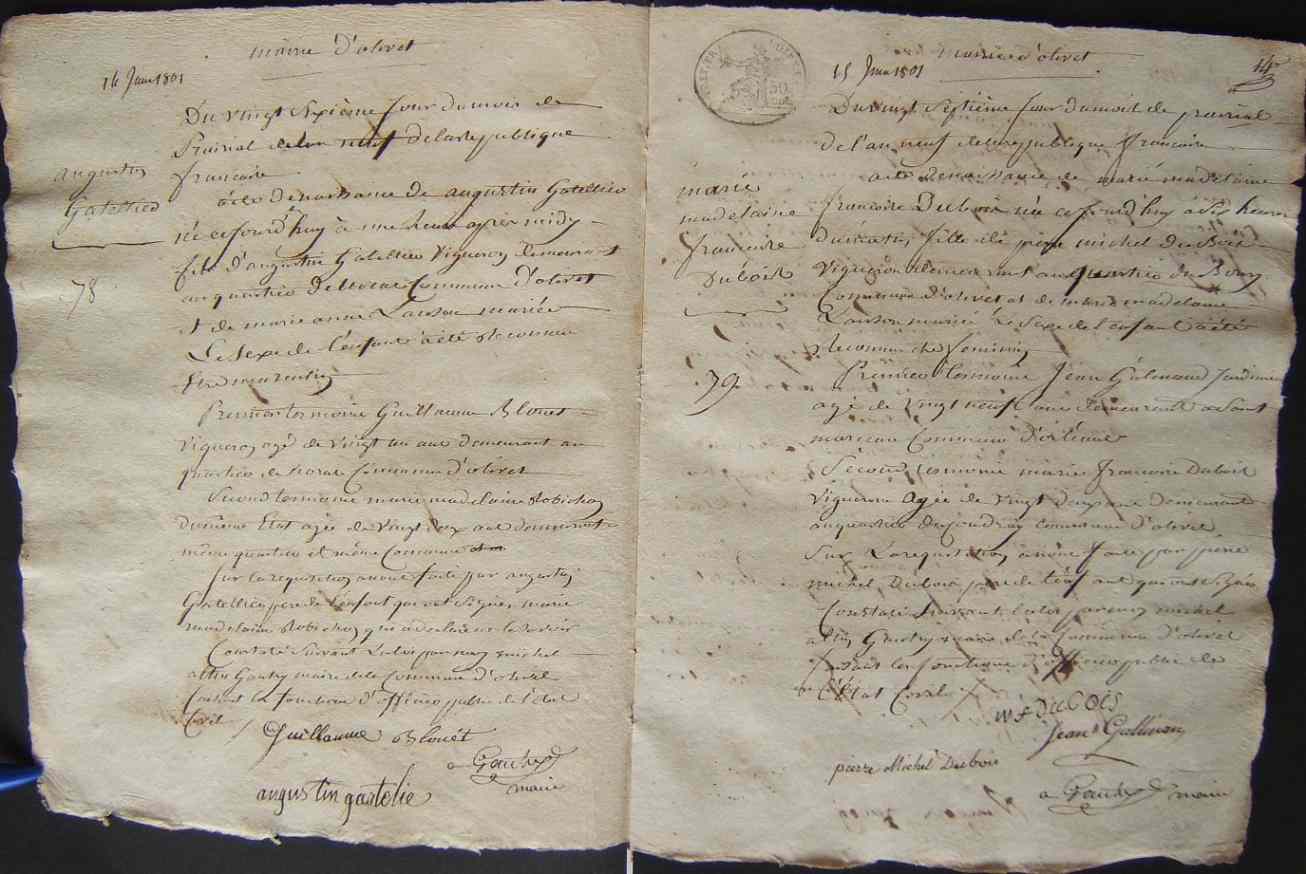 mairie d'olivet
14 Juin 1801
Du vingt sixième jour du mois de
Prairial de lan neuf de la republique
francaise
augustin
Gatellier
78
acte de naissance de augustin Gatellier
né ce jourd'huy à une heure après midy
fils d'augustin Gatellier vigneron demeurant
au quartier de commune d'olivet
et de marie anne mariée
Le sexe de l'enfant à été reconnu
être masculin
Premier temoin Guillaume Blouet
vigneron agé de vingt un ans demeurant au
quartier de commune d'olivet
Second temoin marie madelaine Robichon
du même Etat agée de vingt deux ans demeurant
même quartier et même Commune
sur la requisition à nous faite par augustin
Gatellier père de l'enfant qui ont signés, marie
madelaine Robichon qui à declaré ne le savoir
Constaté suivant la loi par moy michel
Gautry maire de la Commune d'olivet
faisant les fonctions d'officier public de l'état
Civil
Guillaume Blouét
Gautry
maire
augustin gastelié
mairie d'olivet
15 Juin 1801
Du vingt septième jour du mois de prairial
de l'an neuf de la republique francaise
marie
madelaine
francoise
Dubois
79
acte de naissance de marie madelaine
francoise Dubois née ce jourd'huy à six heures
du matin, fille de pierre michel Dubois
vigneron demeurant au quartier du Bourg
Commune d'olivet et de marie madelaine
mariée Le sexe de l'enfant à été
reconnu être feminin
Premier temoin Jean Jardinier
agé de vingt neuf ans demeurant à Saint
marceau Commune d'orléans
Second temoin marie francoise Dubois
vigneronne agée de vingt deux ans demeurant
au quartier du Coudray commune d'olivet
Sur la requisition à nous faite par pierre
michel Dubois père de l'enfant qui ont signés
Constaté suivant la loi par moy michel
Gautry maire de la Commune d'olivet
faisant les fonctions d'officier public de
l'Etat Civil
mf DUBOIS
Jean
pierre Michel Dubois
Gautry maire